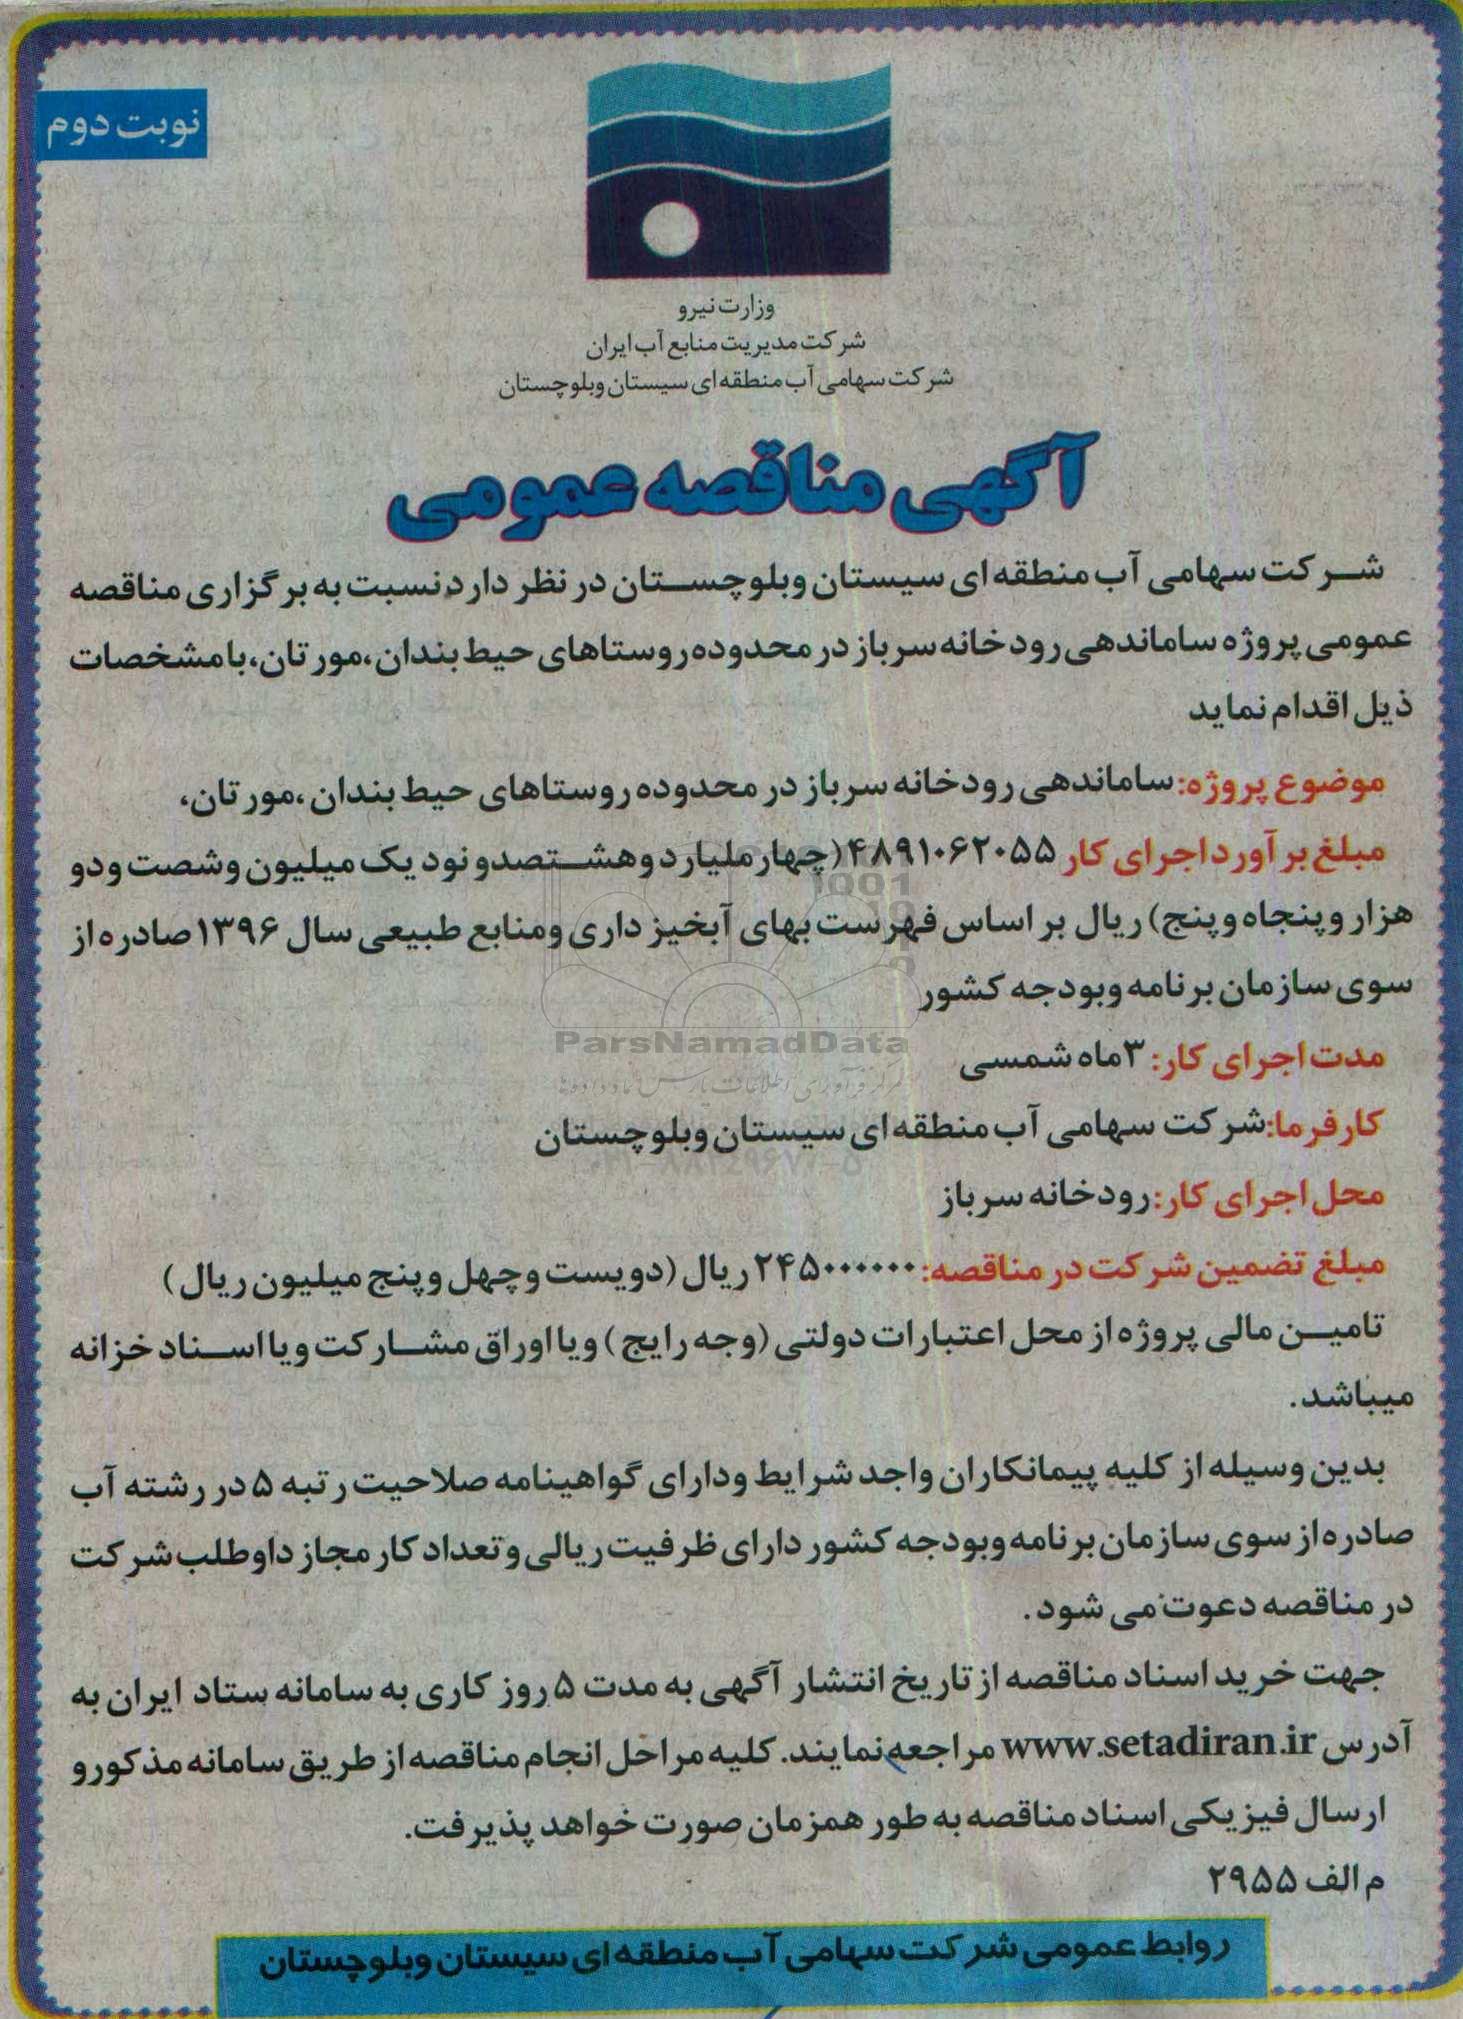 نوبت دوم
وزارت نیرو
شرکت مدیریت منابع آب ایران
شرکت سهامی آب منطقه ای سیستان وبلوچستان
آگهی مناقصه عمومی
شرکت سهامی آب منطقه ای سیستان وبلوچستان در نظر دارد نسبت به برگزاری مناقصه
عمومی پروژه ساماندهی رودخانه سرباز در محدوده روستاهای حیط بندان ،مورتان، بامشخصات
ذیل اقدام نماید
موضوع پروژه: ساماندهی رودخانه سرباز در محدوده روستاهای حیط بندان ،مورتان،
مبلغ برآورد اجرای کار ۴۸۹۱۰۶۲۰۵۵ (چهار ملیارد وهشتصدو نود یک میلیون وشصت ودو
هزار و پنجاه و پنج) ریال بر اساس فهرست بهای آبخیز داری ومنابع طبیعی سال ۱۳۹۶ صادره از
سوی سازمان برنامه وبودجه کشور
ParsNamadData
مدت اجرای کار: ۳ماه شمسی
مرکز فرآوری اطلاعات پارس نماد داده ها
کارفرما: شرکت سهامی آب منطقه ای سیستان وبلوچستان
۰۲۱-۸۸۳۴۹۶۷۰-۵
محل اجرای کار: رودخانه سرباز
مبلغ تضمین شرکت در مناقصه: ۲۴۵۰۰۰۰۰۰ ریال (دویست وچهل وپنج میلیون ریال )
تامین مالی پروژه از محل اعتبارات دولتی (وجه رایج ) ویا اوراق مشارکت ویا اسناد خزانه
میباشد.
بدین وسیله از کلیه پیمانکاران واجد شرایط ودارای گواهینامه صلاحیت رتبه ۵ در رشته آب
صادره از سوی سازمان برنامه وبودجه کشور دارای ظرفیت ریالی وتعداد کار مجاز داوطلب شرکت
در مناقصه دعوت می شود.
جهت خرید اسناد مناقصه از تاریخ انتشار آگهی به مدت ۵ روز کاری به سامانه ستاد ایران به
آدرس www.setadiran.ir مراجعه نمایند. کلیه مراحل انجام مناقصه از طریق سامانه مذکور و
ارسال فیزیکی اسناد مناقصه به طور همزمان صورت خواهد پذیرفت.
م الف ۲۹۵۵
روابط عمومی شرکت سهامی آب منطقه ای سیستان وبلوچستان